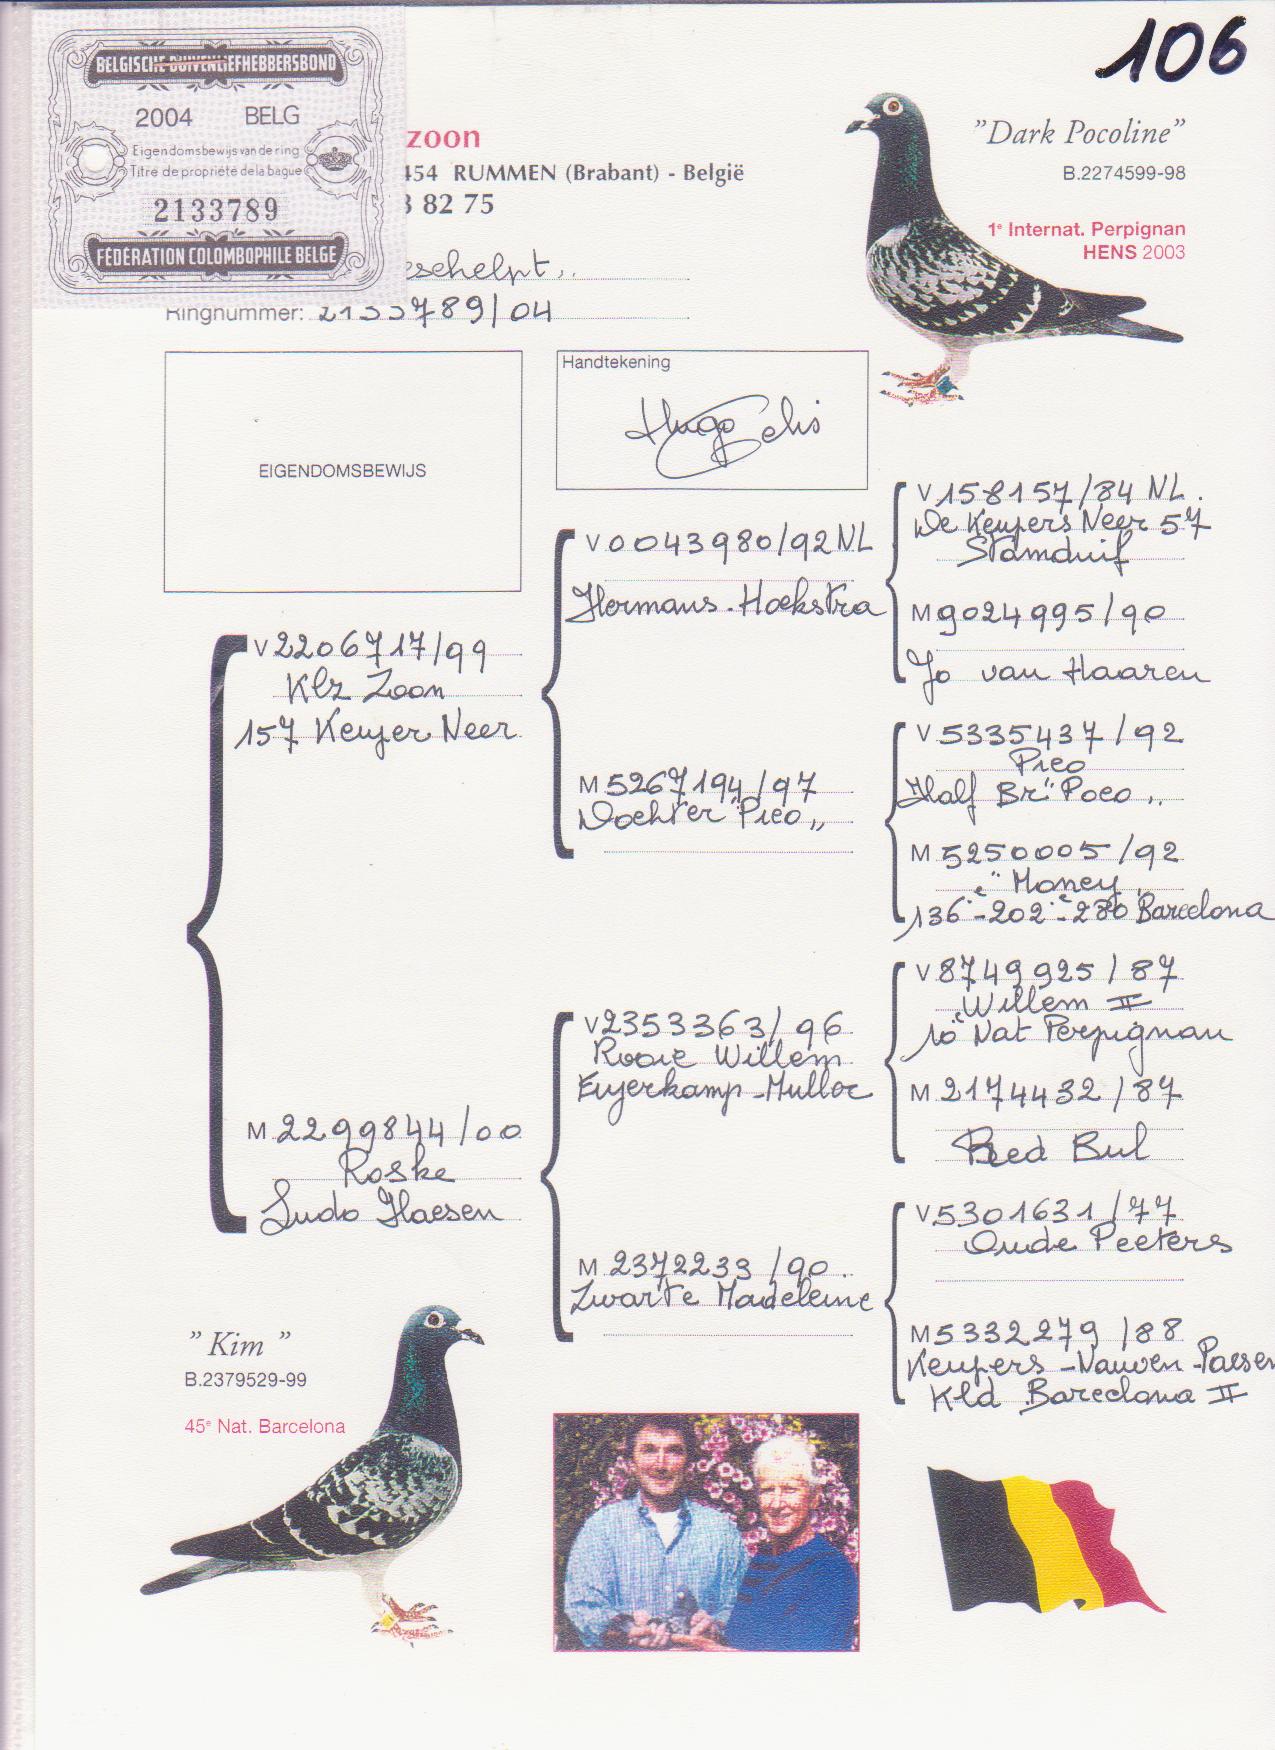 106
BELGISCHE DUIVENLIEFHEBBERSBOND
2004 BELG
Eigendomsbewijs van de ring
Titre de propriété de la bague
2133789
FÉDÉRATION COLOMBOPHILE BELGE
zoon
454 RUMMEN (Brabant) - België
3 82 75
eschelpt,,
Ringnummer: 2133789/04
"Dark Pocoline"
B.2274599-98
1e Internat. Perpignan
HENS 2003
EIGENDOMSBEWIJS
Handtekening
Hugo
V 2206717/99
Klz Zoon
157 Keujer Neer
M 2299844/00
Roske
Ludo Haesen
V 0043980/92 NL
Hermans - Hoekstra
M 5267194/97
Dochter "Pico,,
V 2353363/96
Rooie Willem
Eijerkamp-Muller
M 2372233/90
Zwarte Madeleine
V 158157/84 NL.
De Keupers Neer 57
Stamduif
M 9024995/90
Jo van Haaren
V 5335437/92
Pico
Half Br "Poco,,
M 5250005/92
"Money,,
136e-202e-280 Barcelona
V 8749925/87
"Willem II
10e Nat Perpignan
M 2174432/87
Red Bul
V 5301631/77
Oude Peeters
M 5332279/88
Keupers - Nauwen - Paesen
Kld Barcelona II
" Kim "
B.2379529-99
45e Nat. Barcelona